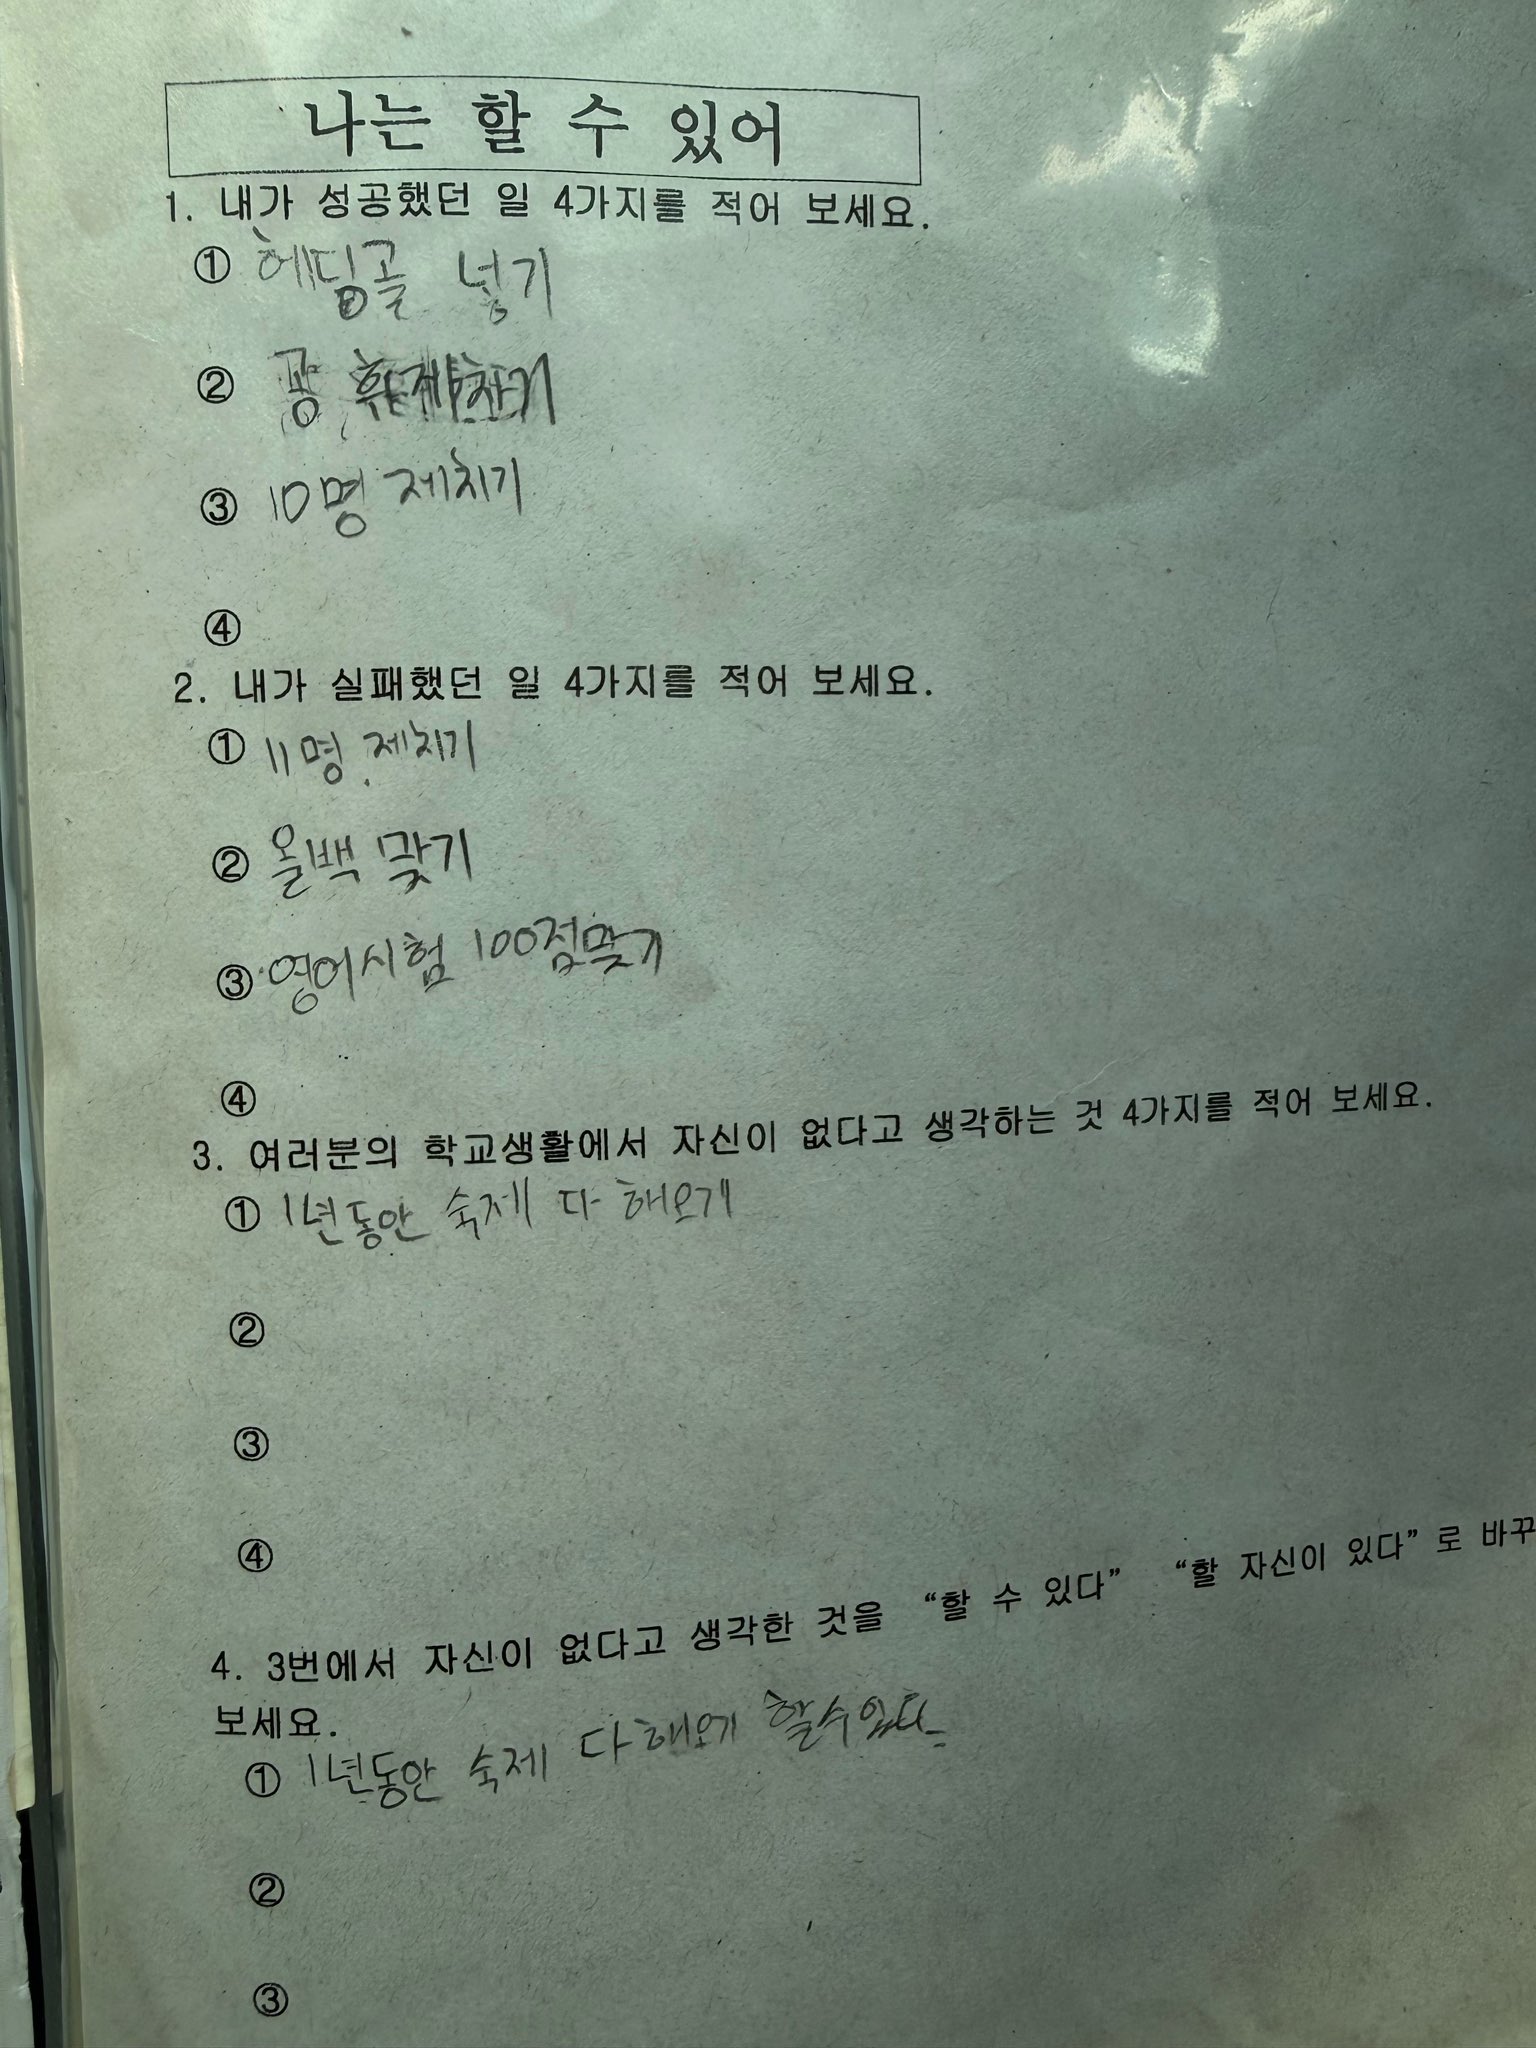 나는 할 수 있어
1. 내가 성공했던 일 4가지를 적어 보세요.
① 헤딩골 넣기
② 공
③ 10명 제치기
④
2. 내가 실패했던 일 4가지를 적어 보세요.
① 11명 제치기
② 올백 맞기
③ 영어시험 100점맞기
④
3. 여러분의 학교생활에서 자신이 없다고 생각하는 것 4가지를 적어 보세요.
① 1년동안 숙제 다 해오기
②
③
④
4. 3번에서 자신이 없다고 생각한 것을 “할 수 있다” “할 자신이 있다”로 바꾸
보세요.
① 1년동안 숙제 다해오기 할수있다
②
③